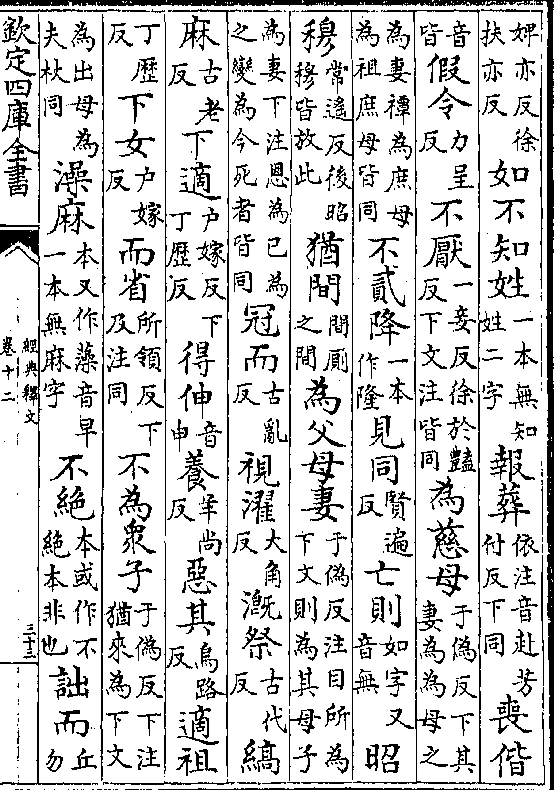 婢亦反徐扶亦反如不知姓一本無知姓二字報葬依注音赴芳付反下同喪偕
音皆假令力呈反不厭一妾反徐於豔反下文注皆同為慈母于偽反下其妻為為母之
為妻禫為庶母為祖庶母皆同不貳降一本作隆見同賢遍反亡則如字又音無昭
穆常遙反後昭穆皆放此猶間間廁之間為父母妻于偽反注目所為下文則為其母子
為妻下注恩為已為之變為今死者皆同冠而古亂反視濯大角反溉祭古代反縞
麻古老反下適户嫁反下丁歷反得伸音申養羊尚反惡其烏路反適祖
丁歷反下女户嫁反而省所領反下及注同不為衆子于偽反下注猶來為下文
為出母為夫杖同澡麻本又作藻音早一本無麻字不絕本或作不絕本非也詘而丘勿
欽定四庫全書
經典釋文
卷十二
三十三